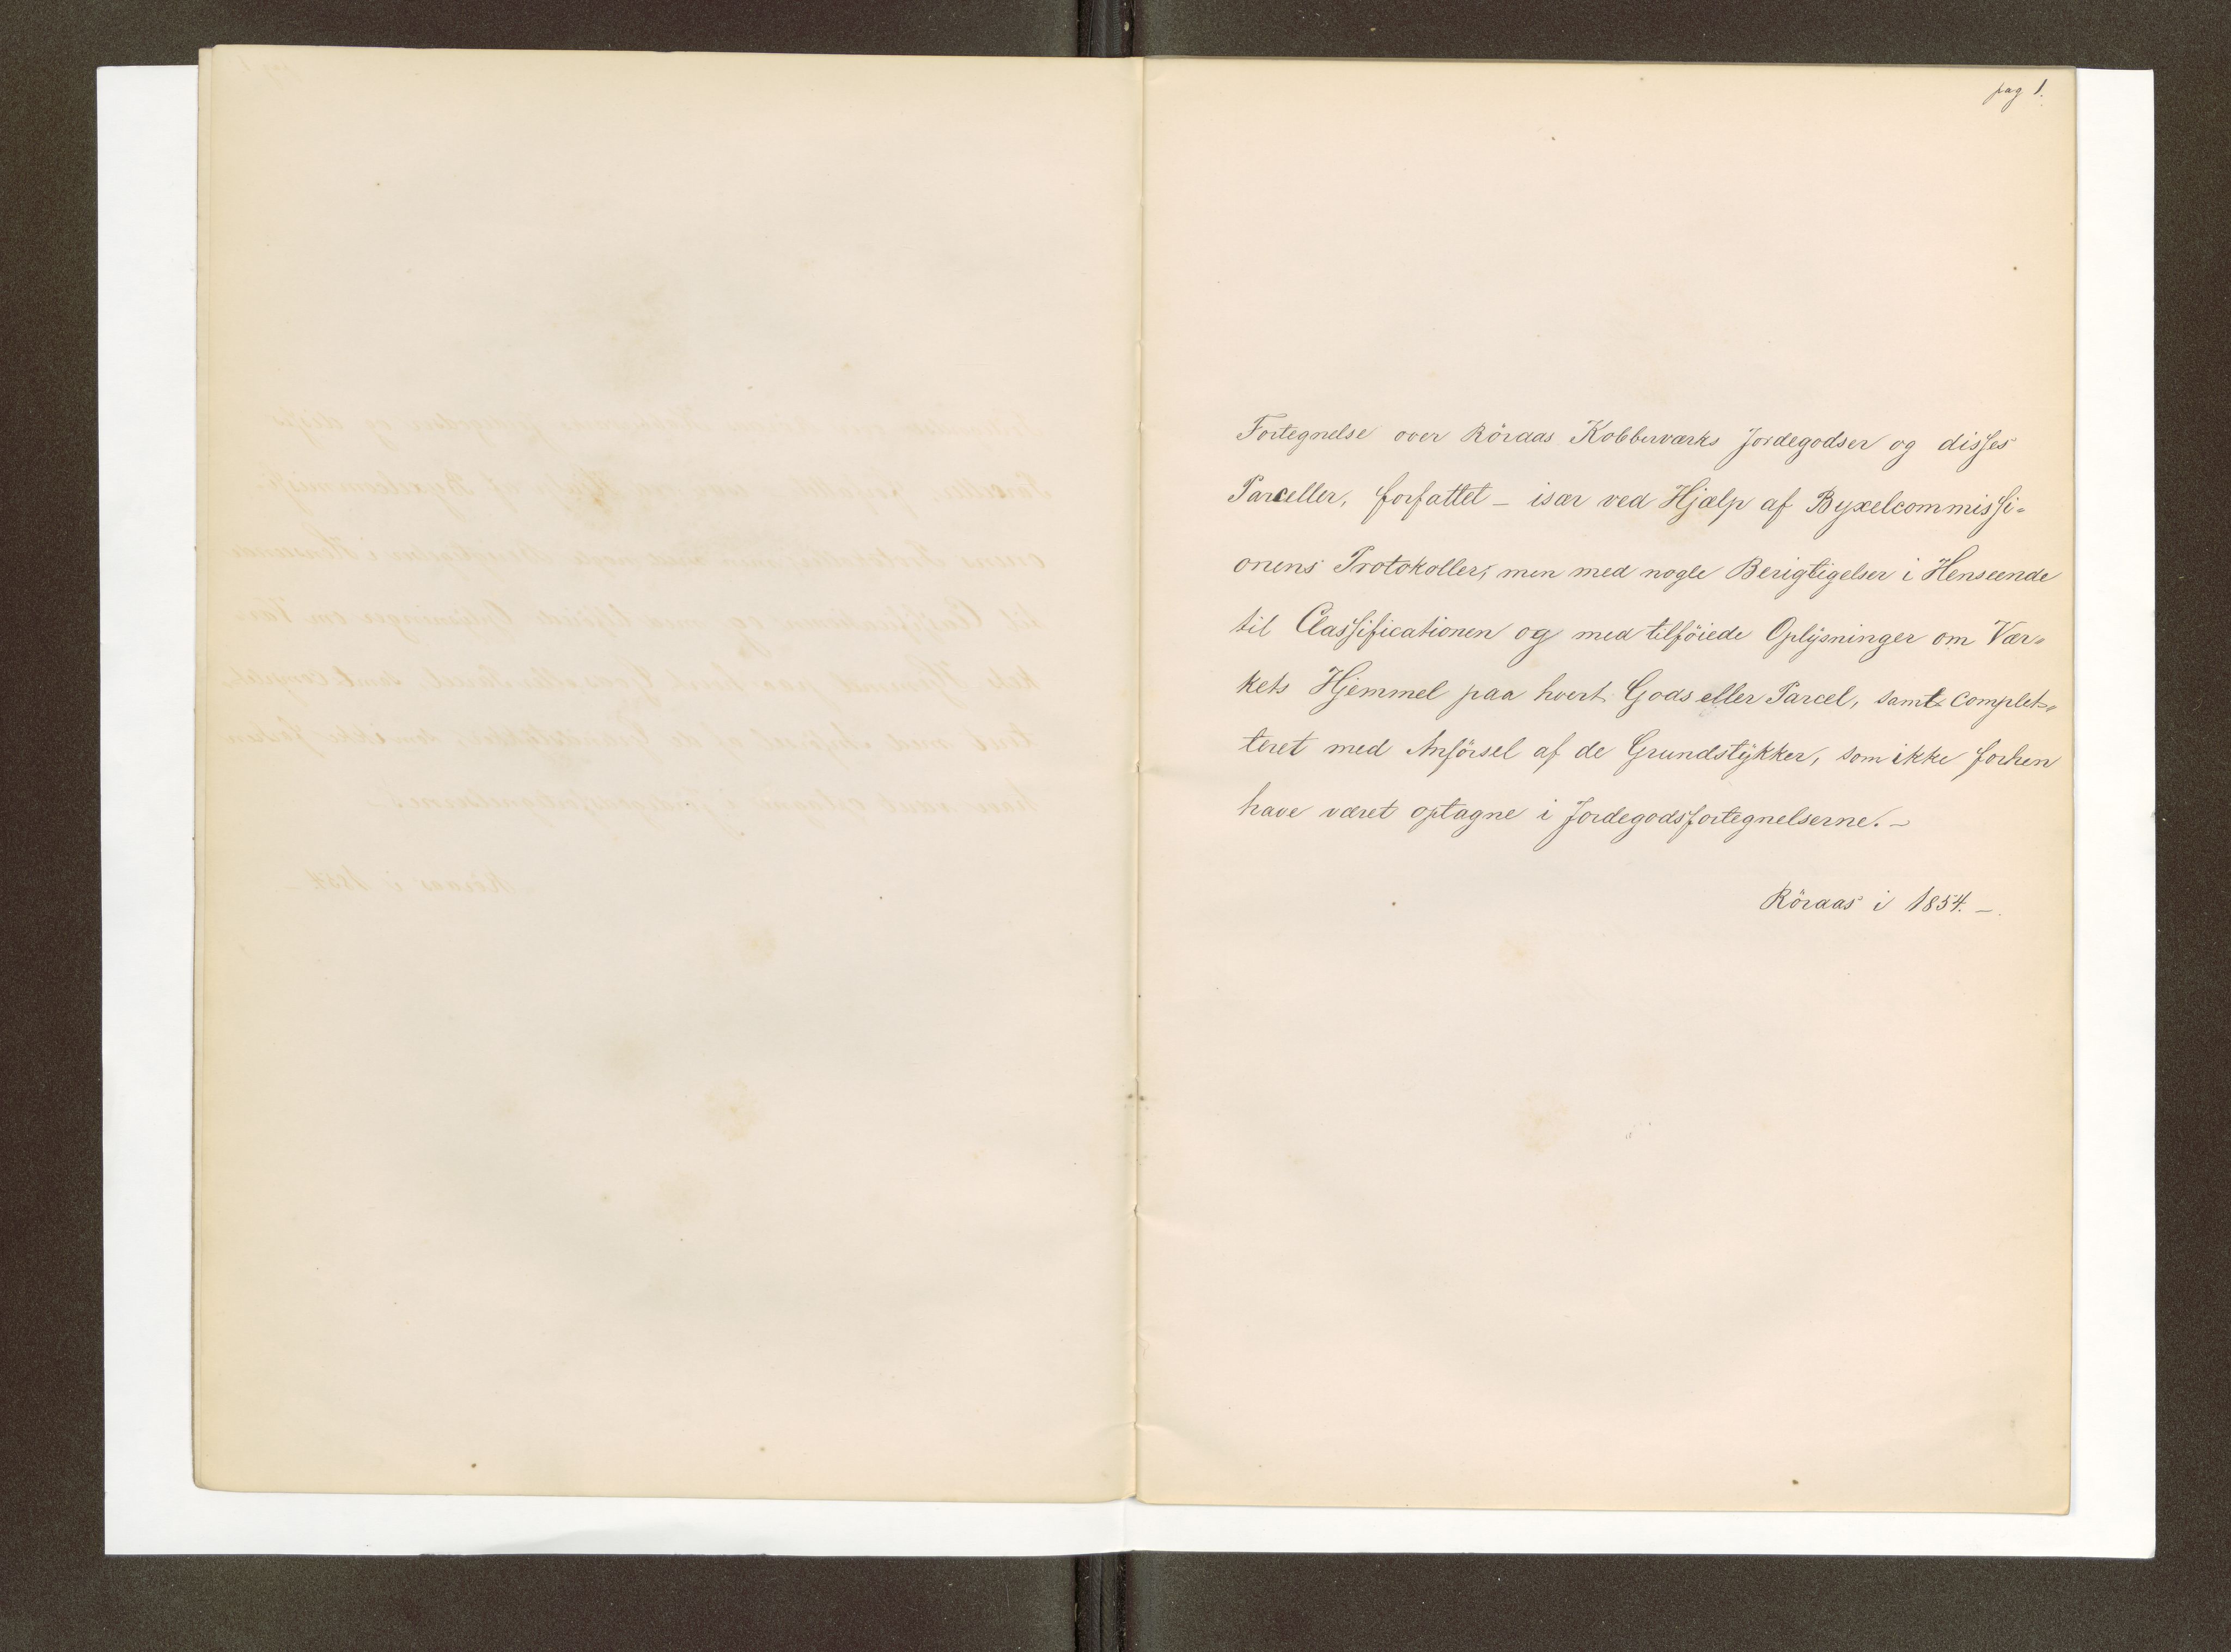 pag 1.
Fortegnelse over Röraas Kobberværks Jordegodser og disses
Parceller, forfattet – især ved Hjælp af Byxelcommissi=
onens Protokoller, men med nogle Berigtigelser i Henseende
til Classificationen og med tilföiede Oplysninger om Vær=
kets Hjemmel paa hvert Gods eller Parcel, samt complet=
teret med Anförsel af de Grundstykker, som ikke forhen
have været optagne i Jordegodsfortegnelserne. –
Röraas i 1854. –